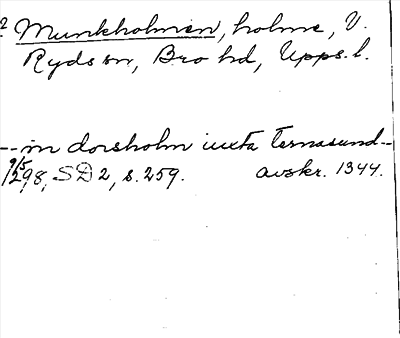 ? Munkholmen, holme, V.
Ryds sn, Bro hd, Upps. l.
--in dorsholm iuxta Ternasund--
9/5 1298, SD 2, s. 259. avskr. 1344.